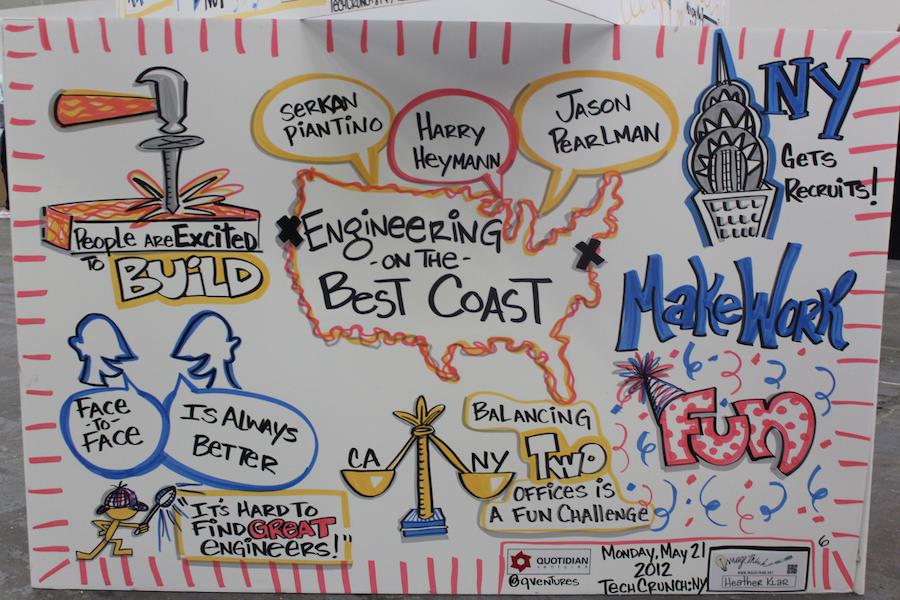 TECHCRUNCH:NY
SERKAN
PIANTINO
HARRY
HEYMANN
JASON
PEARLMAN
NY
GETS
RECRUITS!
PEOPLE ARE EXCITED
TO BUILD
ENGINEERING
-ON THE-
BEST COAST
MAKE WORK
FUN
FACE
-TO-
FACE
IS ALWAYS
BETTER
CA
NY
BALANCING
TWO
OFFICES IS
A FUN CHALLENGE
"IT'S HARD TO
FIND GREAT
ENGINEERS!"
QUOTIDIAN
ventures
@QVENTURES
MONDAY, MAY 21
2012
TECHCRUNCH:NY
ImageThink
WWW.IMAGETHINK.NET
HEATHER KLAR
6